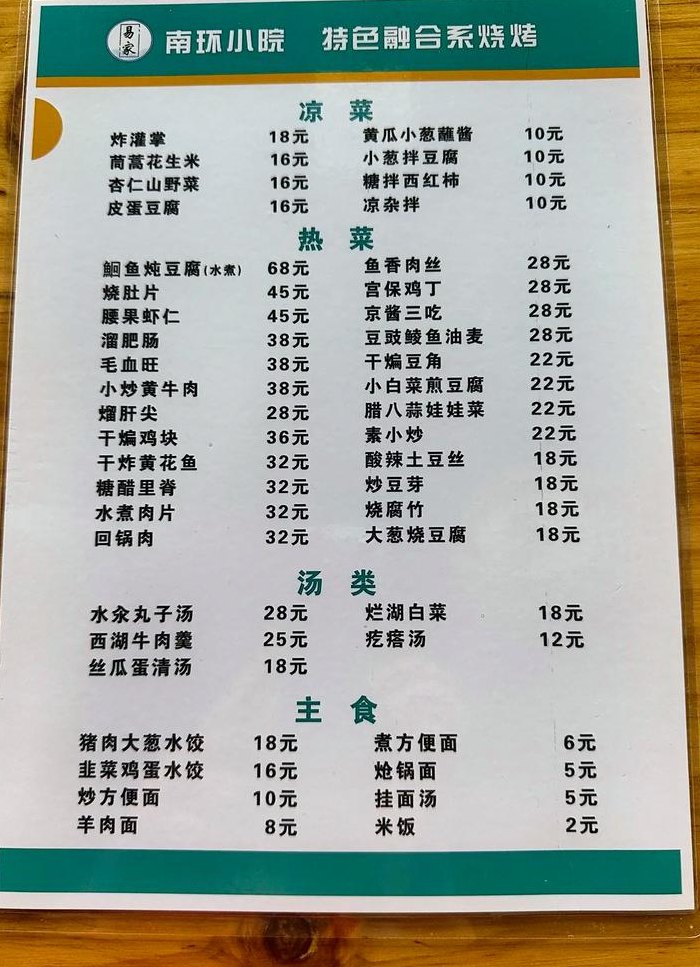 易家 南环小院 特色融合系烧烤
凉菜
炸灌掌 18元 黄瓜小葱蘸酱 10元
茼蒿花生米 16元 小葱拌豆腐 10元
杏仁山野菜 16元 糖拌西红柿 10元
皮蛋豆腐 16元 凉杂拌 10元
热菜
鮰鱼炖豆腐(水煮) 68元 鱼香肉丝 28元
烧肚片 45元 宫保鸡丁 28元
腰果虾仁 45元 京酱三吃 28元
溜肥肠 38元 豆豉鲮鱼油麦 28元
毛血旺 38元 干煸豆角 22元
小炒黄牛肉 38元 小白菜煎豆腐 22元
熘肝尖 28元 腊八蒜娃娃菜 22元
干煸鸡块 36元 素小炒 22元
干炸黄花鱼 32元 酸辣土豆丝 18元
糖醋里脊 32元 炒豆芽 18元
水煮肉片 32元 烧腐竹 18元
回锅肉 32元 大葱烧豆腐 18元
汤类
水汆丸子汤 28元 烂湖白菜 18元
西湖牛肉羹 25元 疙瘩汤 12元
丝瓜蛋清汤 18元
主食
猪肉大葱水饺 18元 煮方便面 6元
韭菜鸡蛋水饺 16元 炝锅面 5元
炒方便面 10元 挂面汤 5元
羊肉面 8元 米饭 2元